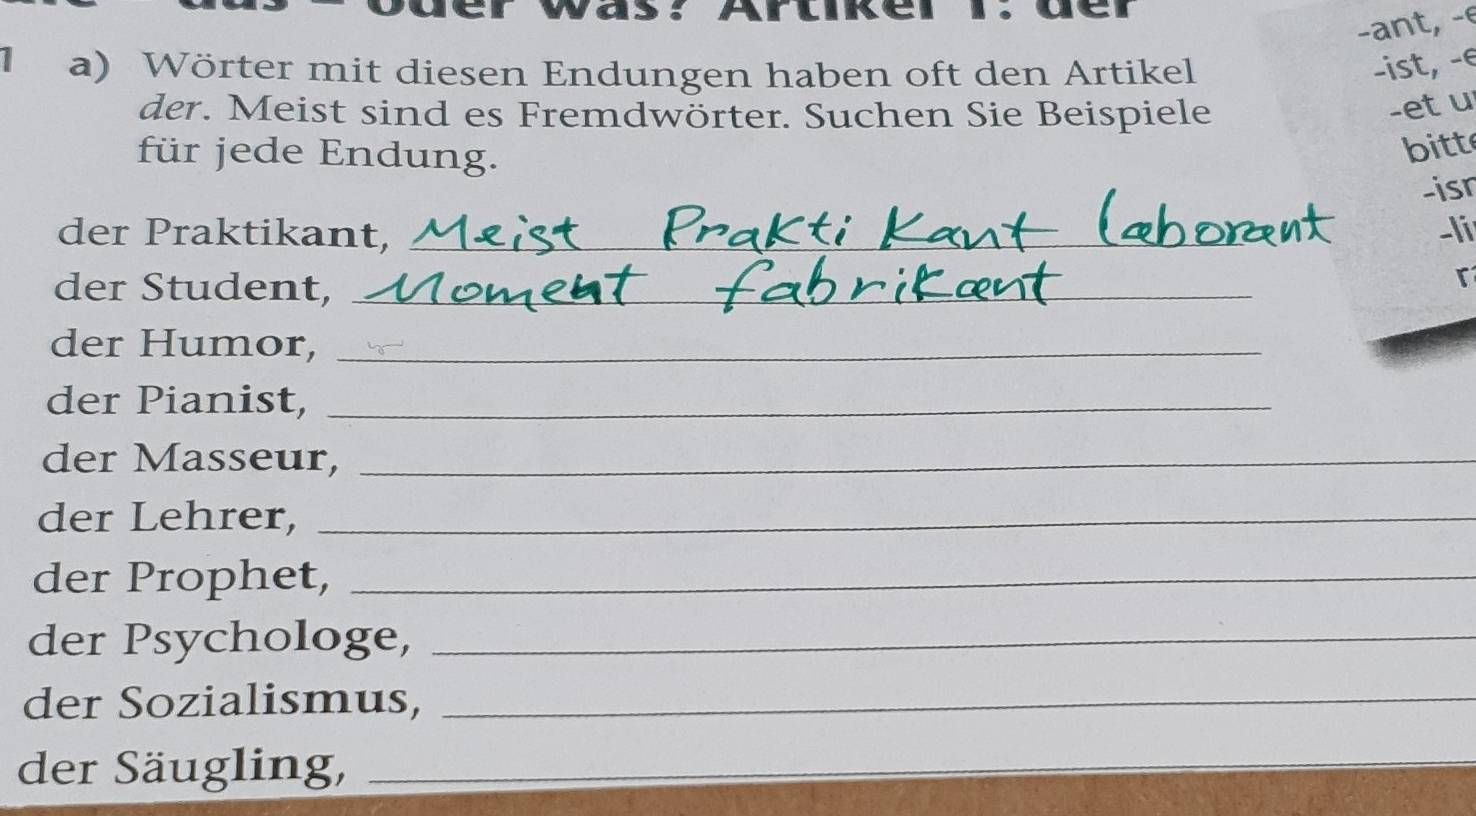 oder was? Artikel 1: der
-ant, -e
-ist, -e
-et u
bitte
-isn
-li
1 a) Wörter mit diesen Endungen haben oft den Artikel
der. Meist sind es Fremdwörter. Suchen Sie Beispiele
für jede Endung.
der Praktikant, Meist Praktikant laborant
der Student, Moment fabrikant
der Humor,
der Pianist,
der Masseur,
der Lehrer,
der Prophet,
der Psychologe,
der Sozialismus,
der Säugling,